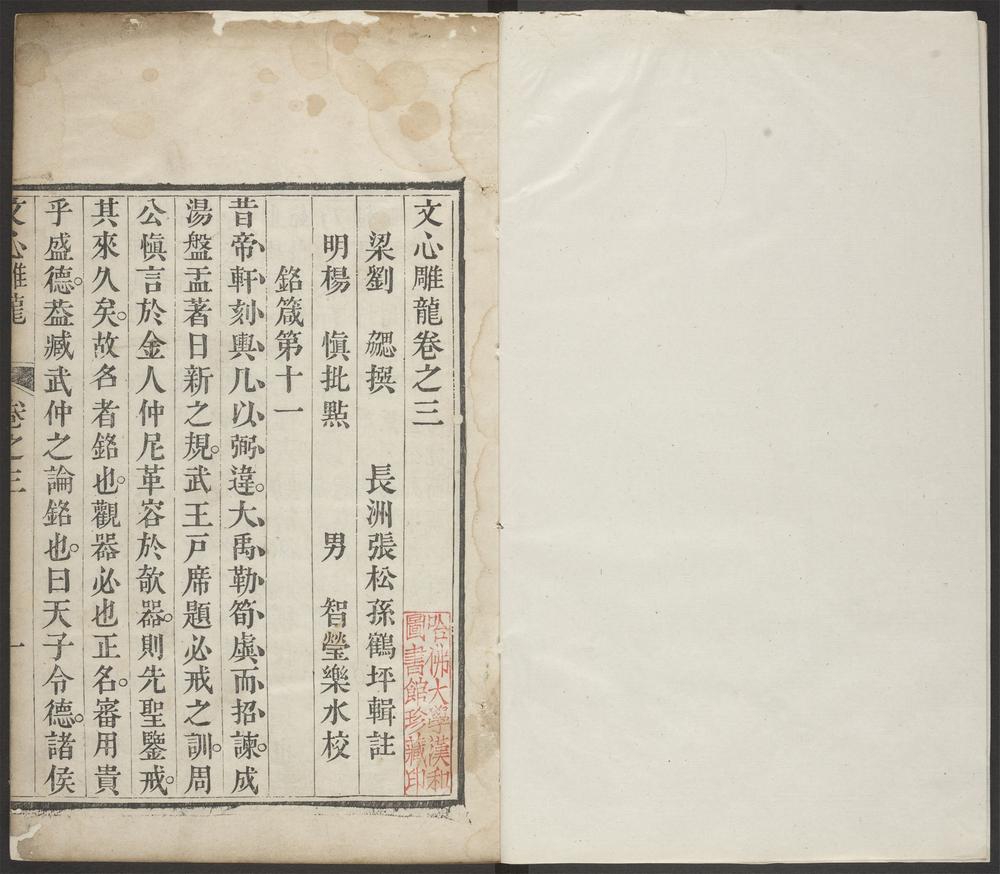 文心雕龍卷之三
梁劉　勰撰　　長洲張松孫鶴坪輯註
明楊　慎批點　　　男　智瑩樂水校
銘箴第十一
昔帝軒刻輿几以弼違。大禹勒筍虡而招諫。成
湯盤盂著日新之規。武王戸席題必戒之訓。周
公愼言於金人仲尼革容於欹器。則先聖鑒戒。
其來久矣。故名者銘也。觀器必也正名。審用貴
乎盛德。葢臧武仲之論銘也。曰天子令德。諸侯
文心雕龍　卷之三　一
哈佛大學漢和
圖書館珍藏印